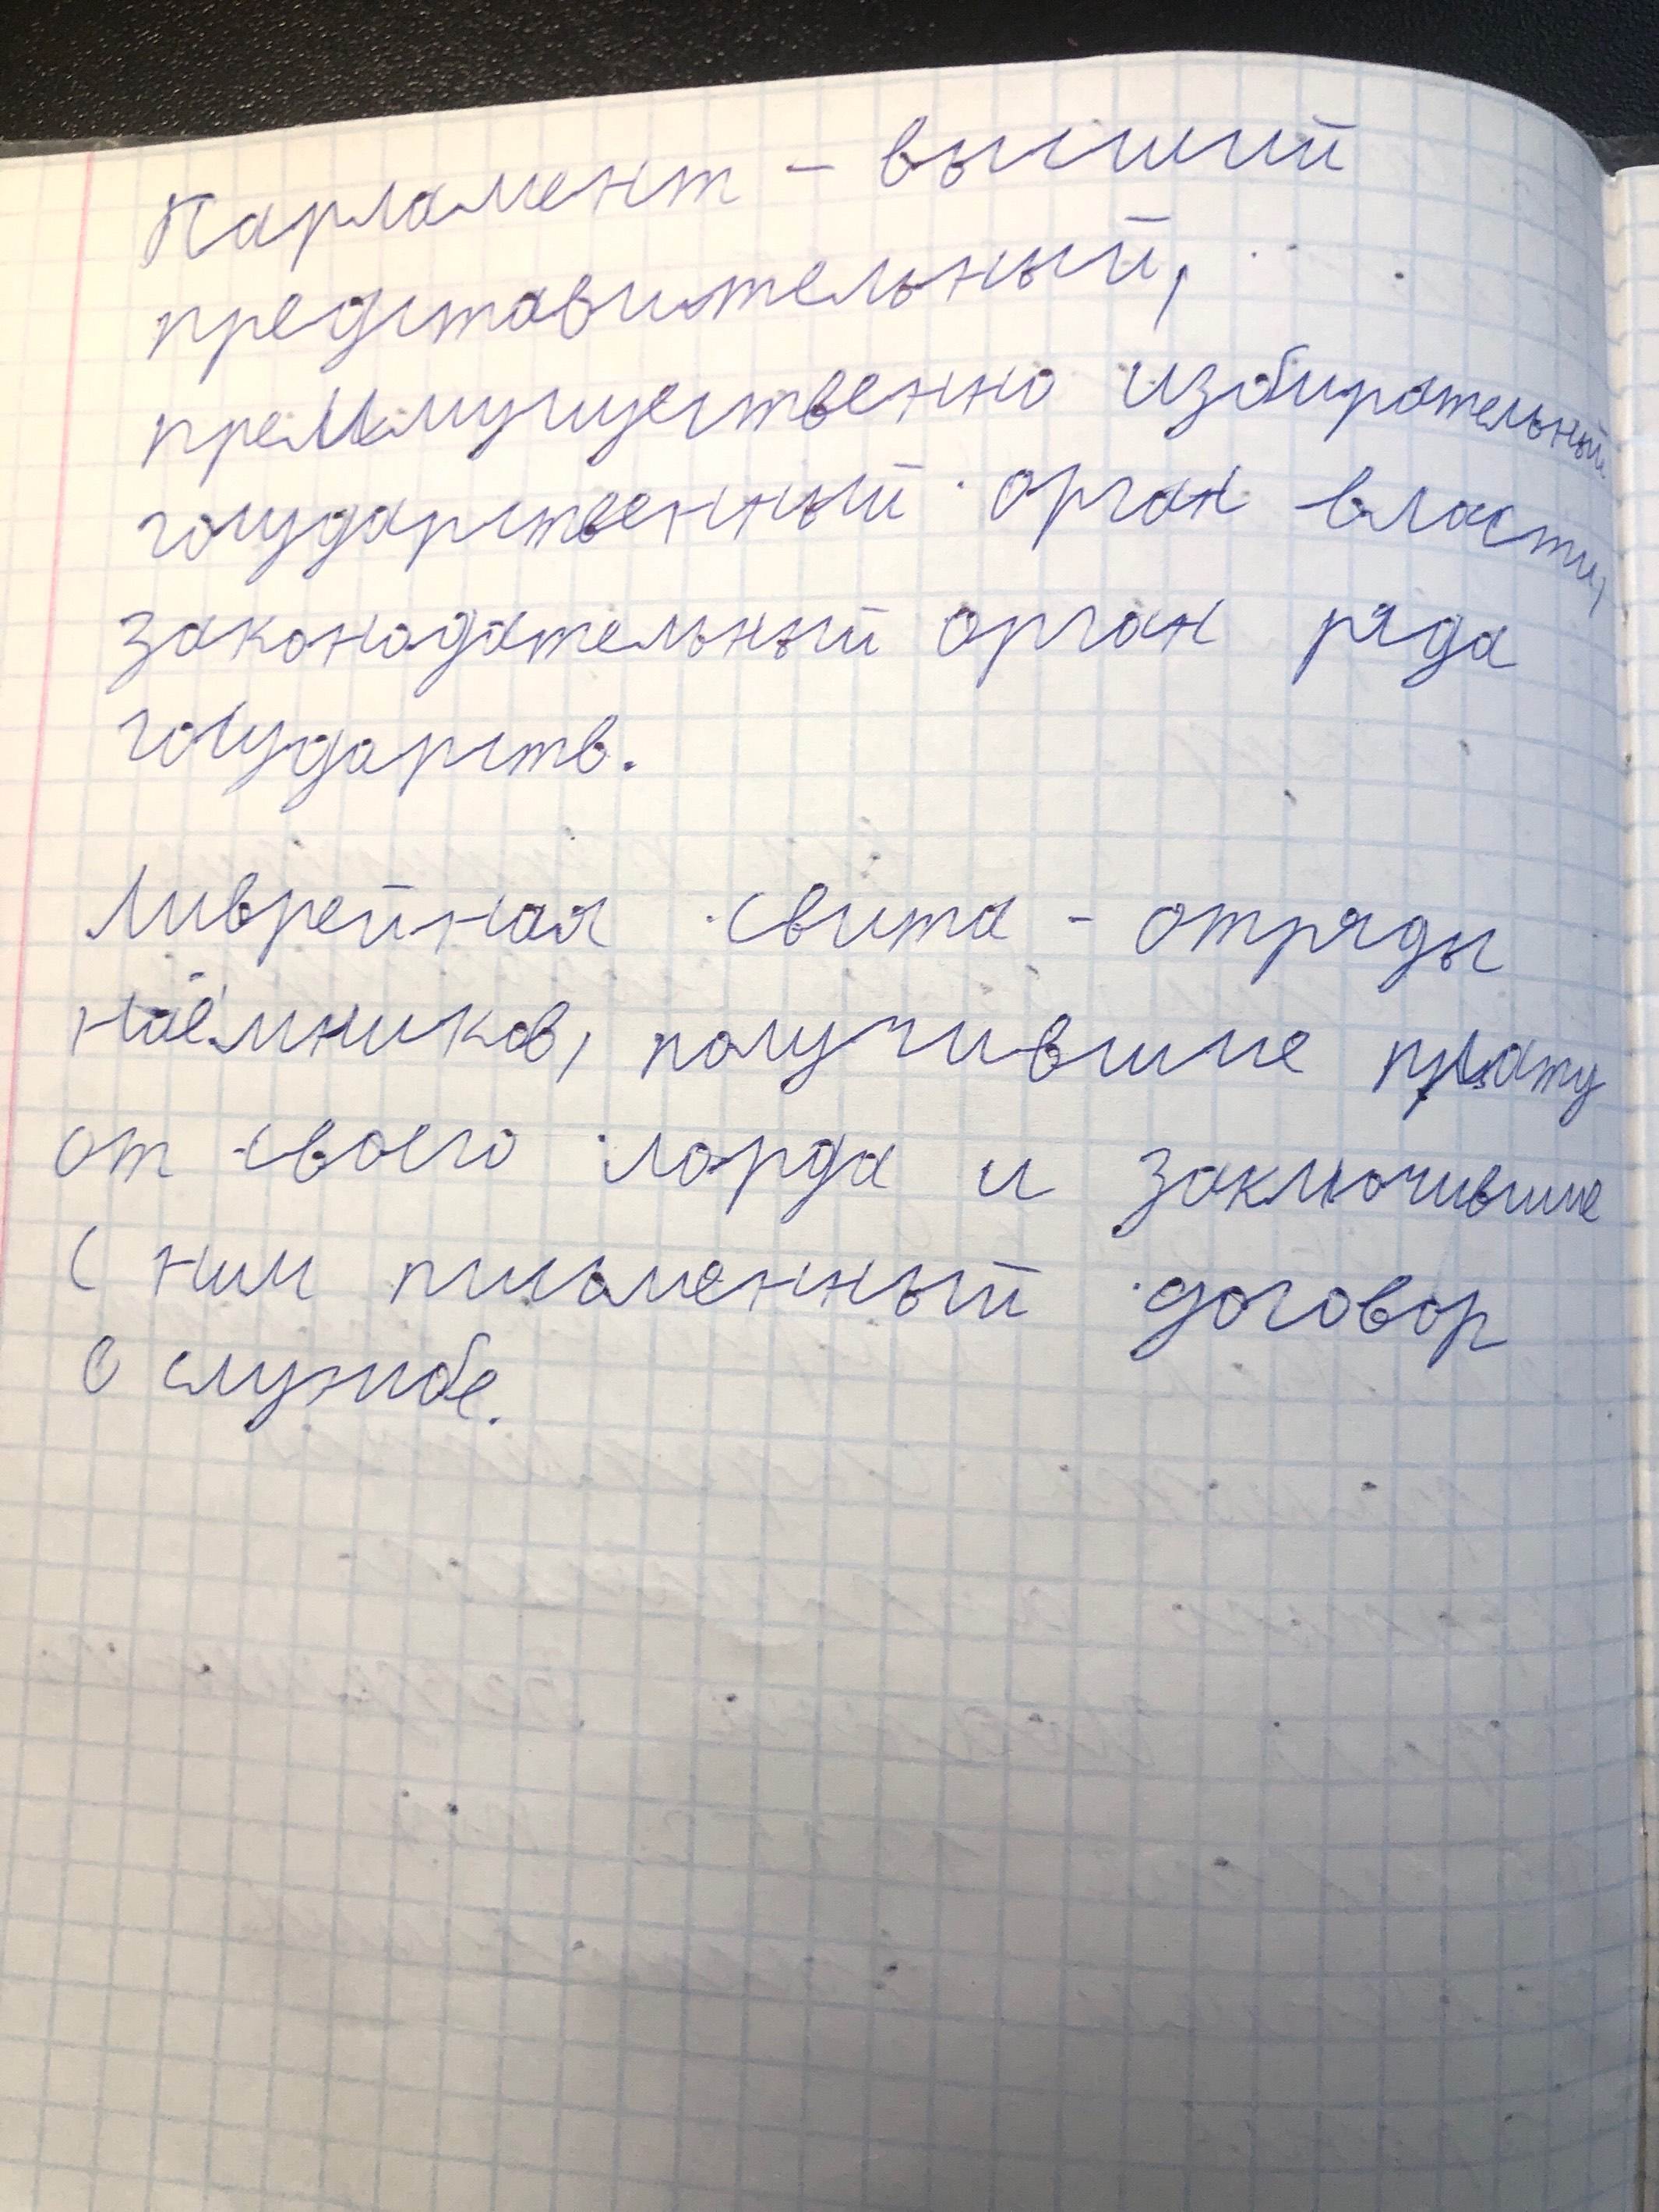 Парламент - высший
представительный,
преимущественно избирательный
государственный орган власти,
законодательный орган ряда
государств.
Ливрейная свита - отряды
наёмников, получившие плату
от своего лорда и заключившие
с ним письменный договор
о службе.